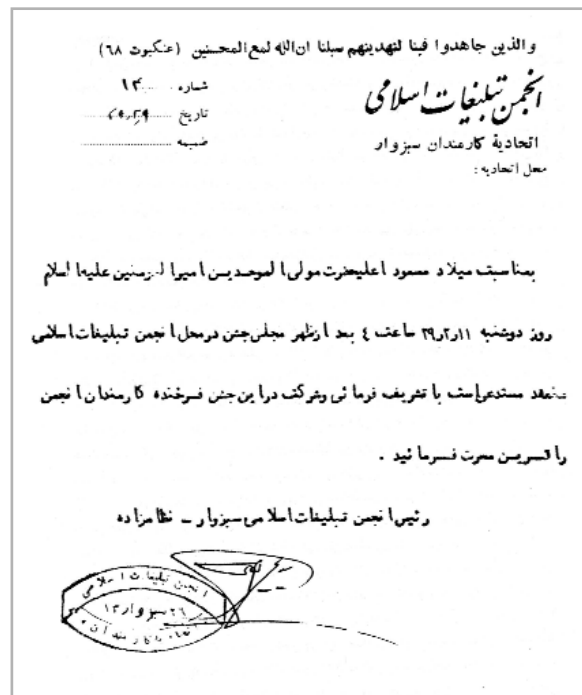 والذین جاهدوا فینا لنهدینهم سبلنا ان الله لمع المحسنین (عنکبوت ۶۸)
انجمن تبلیغات اسلامی
اتحادیة کارمندان سبزوار
محل اتحادیه:
شماره ۱۴
تاریخ
ضمیمه
بمناسبت میلاد مسعود اعلیحضرت مولی الموحدین امیرالمؤمنین علیه اسلام
روز دوشنبه ۲۹٫۲٫۱۱ ساعت ٤ بعد ازظهر مجلس جشن درمحل انجمن تبلیغات اسلامی
منعقد مستدعی است با تشریف فرمائی وشرکت دراین جشن فرخنده کارمندان انجمن
را قسرین مسرت فرمائید .
رئیس انجمن تبلیغات اسلامی سبزوار ـ نظامزاده
انجمن تبلیغات اسلامی
۲۶ سبزوار ۱۳
کارمندان